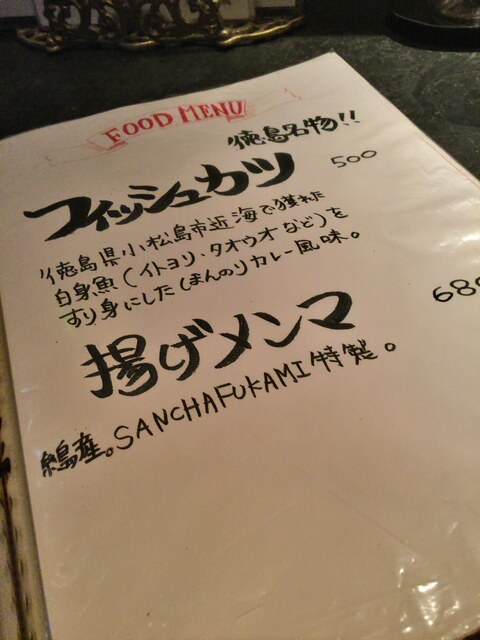 FOOD MENU
徳島名物!!
フィッシュカツ 500
徳島県小松島市近海で獲れた
白身魚(イトヨリ・タオウオなど)を
すり身にしたほんのりカレー風味。
揚げメンマ 680
SANCHAFUKAMI特製。